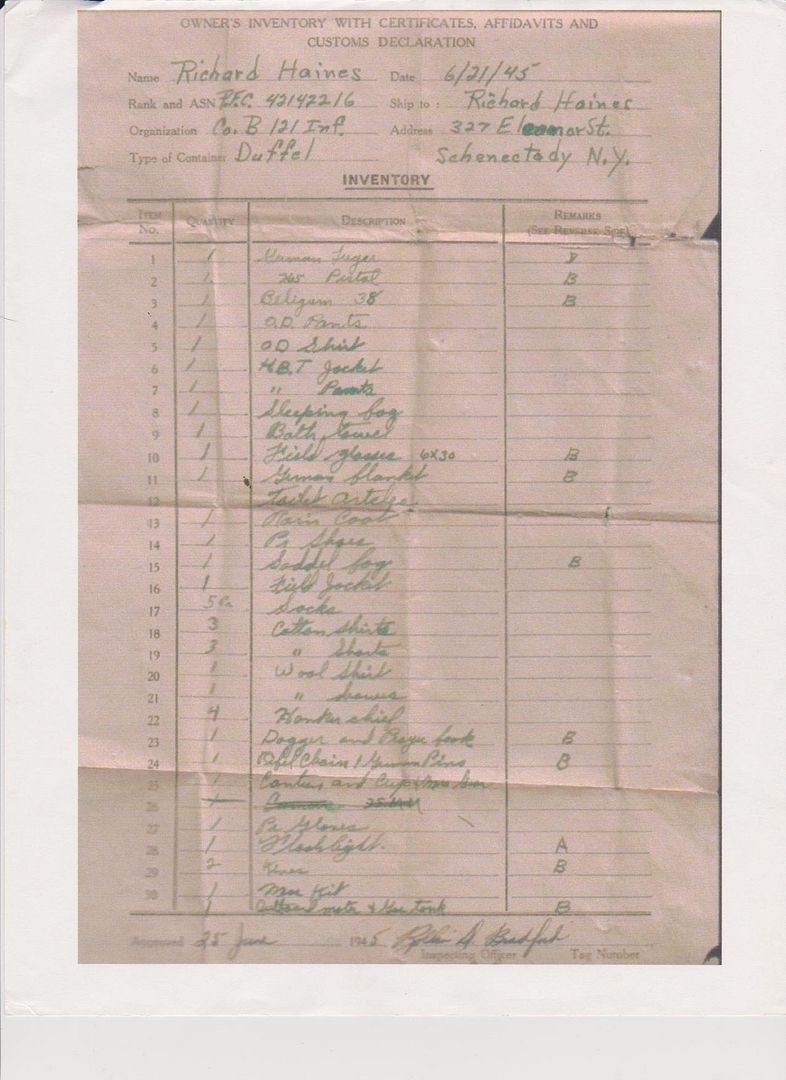 OWNER'S INVENTORY WITH CERTIFICATES, AFFIDAVITS AND
CUSTOMS DECLARATION
Name Richard Haines Date 6/21/45
Rank and ASN P.F.C. 42142216 Ship to: Richard Haines
Organization Co. B 121 Inf. Address 327 Eleanor St.
Type of Container Duffel Schenectady N.Y.
INVENTORY
ITEM No. QUANTITY DESCRIPTION REMARKS (SEE REVERSE SIDE)
1 1 German Luger
2 1 765 Pistol B
3 1 Belegum 38 B
4 1 O.D. Pants
5 1 OD Shirt
6 1 H.B.T Jacket
7 1 " Pants
8 1 Sleeping bag
9 1 Bath towel
10 1 Field glasses 6X30 B
11 1 German blanket B
12 Toilet
13 1 Rain Coat
14 1 Pr Shoes
15 1 Saddel bag B
16 1 Field Jacket
17 5 Pr Socks
18 3 Cotton Shirts
19 3 " Shorts
20 1 Wool Shirt
21 1 "
22 4 Hankerchief
23 1 Dagger and Prayer book B
24 1 Chain 1 German Pins B
25 1 Canteen and Cup
26 1
27 1 Pr Gloves
28 1 Flashlight. A
29 2 B
30 1 Mess Kit
1 motor & Gas Tank B
Approved 25 June 1945 Bradford
Inspecting Officer Tag Number